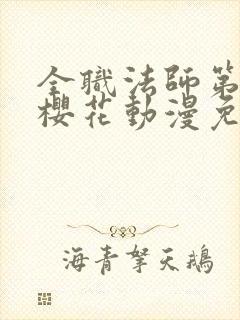 全職法師第
櫻花動漫免
海青拏天鵝